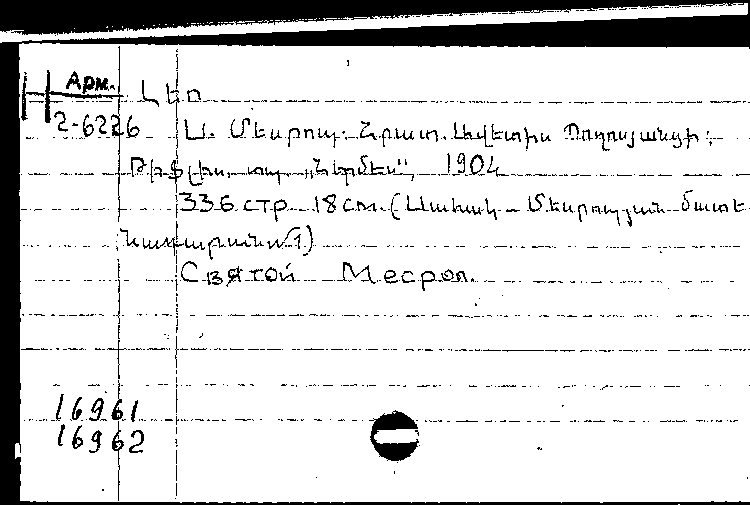 Арм. Լեո
2-6226 Ս. Մեսրոպ. Հրատ. Ավետիս Պողոսյանցի;
Թիֆլիս, տպ. „Հերմես", 1904
336 стр. 18 см. (Սահակ-Մեսրոպյան մատե
նադարան №1)
Святой Месроп.
16961
16962